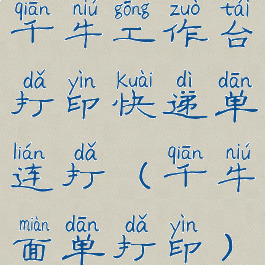 qiān niú gōng zuò tái
千牛工作台
dǎ yìn Kuài dì dān
打印快递单
lián dǎ qiān niú
连打（千牛
miàn dān dǎ yìn
面单打印）